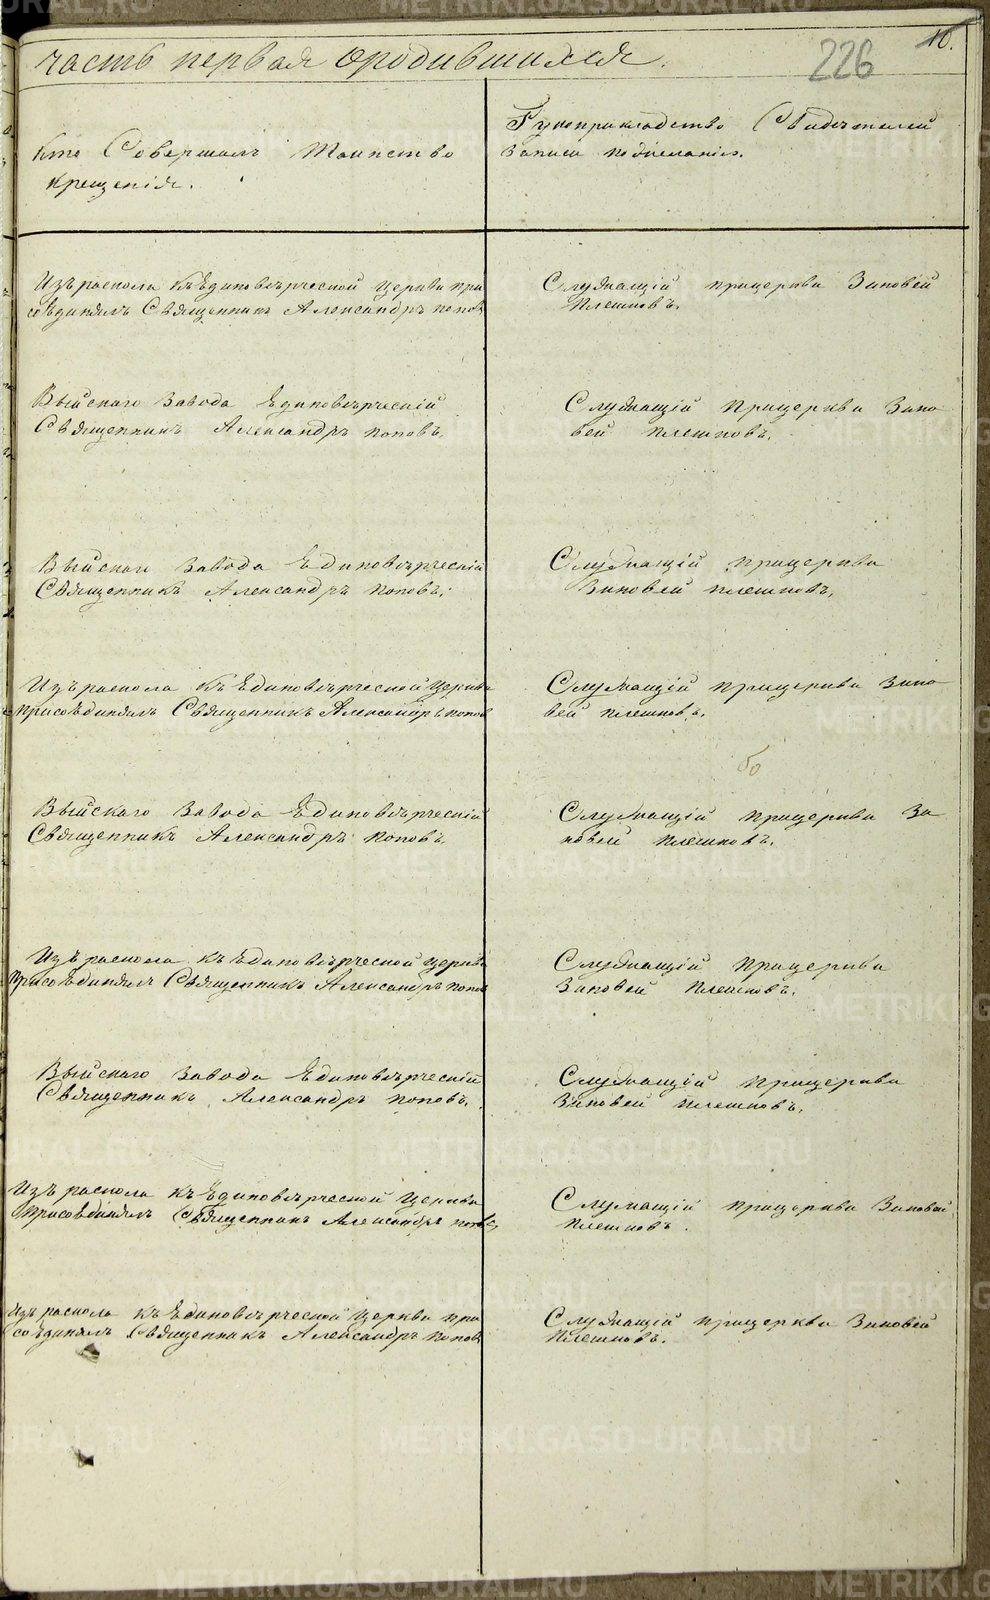 часть первая ородившихся.
226
10.
Кто Совершалъ Таинство
крещенія.
Рукоприкладство Свидѣтелей
Записи пожеланію.
Изъ раскола къ Единовѣрческой Церкви при
соѣдинялъ Священникъ Александръ Поповъ
Служащій прицеркви Зиновей
Плешковъ.
Выйскаго Завода Единовѣрческій
Священникъ Александръ Поповъ.
Служащій прицеркви Зино
вей Плешковъ.
Выйскаго Завода Единовѣрческій
Священникъ Александръ Поповъ.
Служащій прицеркви
Зиновей Плешковъ.
Изъ раскола къ Единовѣрческой Церкви
присоѣдинялъ Священникъ Александръ Поповъ
Служащій прицеркви Зино
вей Плешковъ.
Выйскаго Завода Единовѣрческій
Священникъ Александръ Поповъ.
Служащій прицеркви Зи
новей Плешковъ.
Изъ раскола къ Единовѣрческой Церкви
Присоѣдинялъ Священникъ Александръ Поповъ
Служащій прицеркви
Зиновей Плешковъ.
Выйскаго Завода Единовѣрческій
Священникъ Александръ Поповъ.
Служащій прицеркви
Зиновей Плешковъ.
Изъ раскола къ Единовѣрческой Церкви
присоѣдинялъ Священникъ Александръ Поповъ
Служащій прицеркви Зиновей
Плешковъ.
Изъ раскола къ Единовѣрческой Церкви при
соѣдинялъ Священникъ Александръ Поповъ
Служащій прицеркви Зиновей
Плешковъ.
METRIKI.GASO-URAL.RU